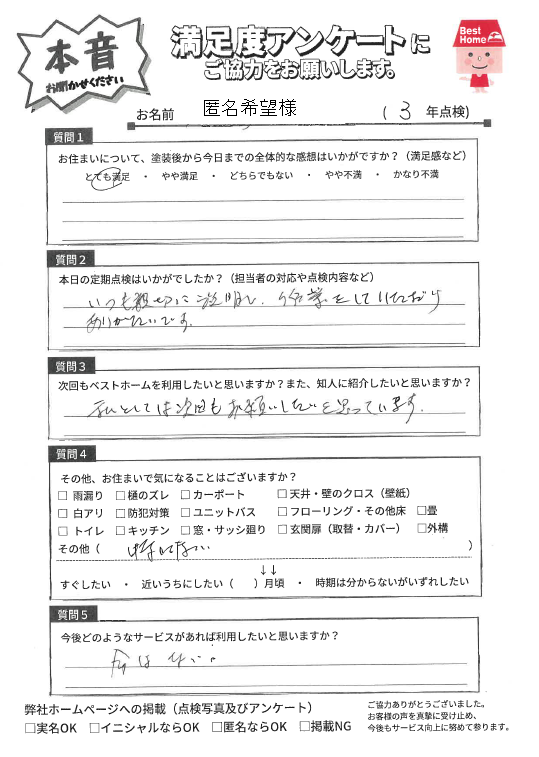 本音
お聞かせください
満足度アンケートに
ご協力をお願いします。
Best Home
お名前 匿名希望様 (3 年点検)
質問1
お住まいについて、塗装後から今日までの全体的な感想はいかがですか?(満足感など)
とても満足 ・ やや満足 ・ どちらでもない ・ やや不満 ・ かなり不満
質問2
本日の定期点検はいかがでしたか?(担当者の対応や点検内容など)
いつも親切に説明し、作業をしていただり
ありがたいです。
質問3
次回もベストホームを利用したいと思いますか?また、知人に紹介したいと思いますか?
私としては次回もお願いしたいと思っています。
質問4
その他、お住まいで気になることはございますか?
□ 雨漏り □ 樋のズレ □ カーポート □ 天井・壁のクロス(壁紙)
□ 白アリ □ 防犯対策 □ ユニットバス □ フローリング・その他床 □ 畳
□ トイレ □ キッチン □ 窓・サッシ廻り □ 玄関扉(取替・カバー) □ 外構
その他( 特にない )
↓↓
すぐしたい ・ 近いうちにしたい( )月頃 ・ 時期は分からないがいずれしたい
質問5
今後どのようなサービスがあれば利用したいと思いますか?
今はない。
弊社ホームページへの掲載(点検写真及びアンケート)
□実名OK □イニシャルならOK □匿名ならOK □掲載NG
ご協力ありがとうございました。
お客様の声を真摯に受け止め、
今後もサービス向上に努めて参ります。